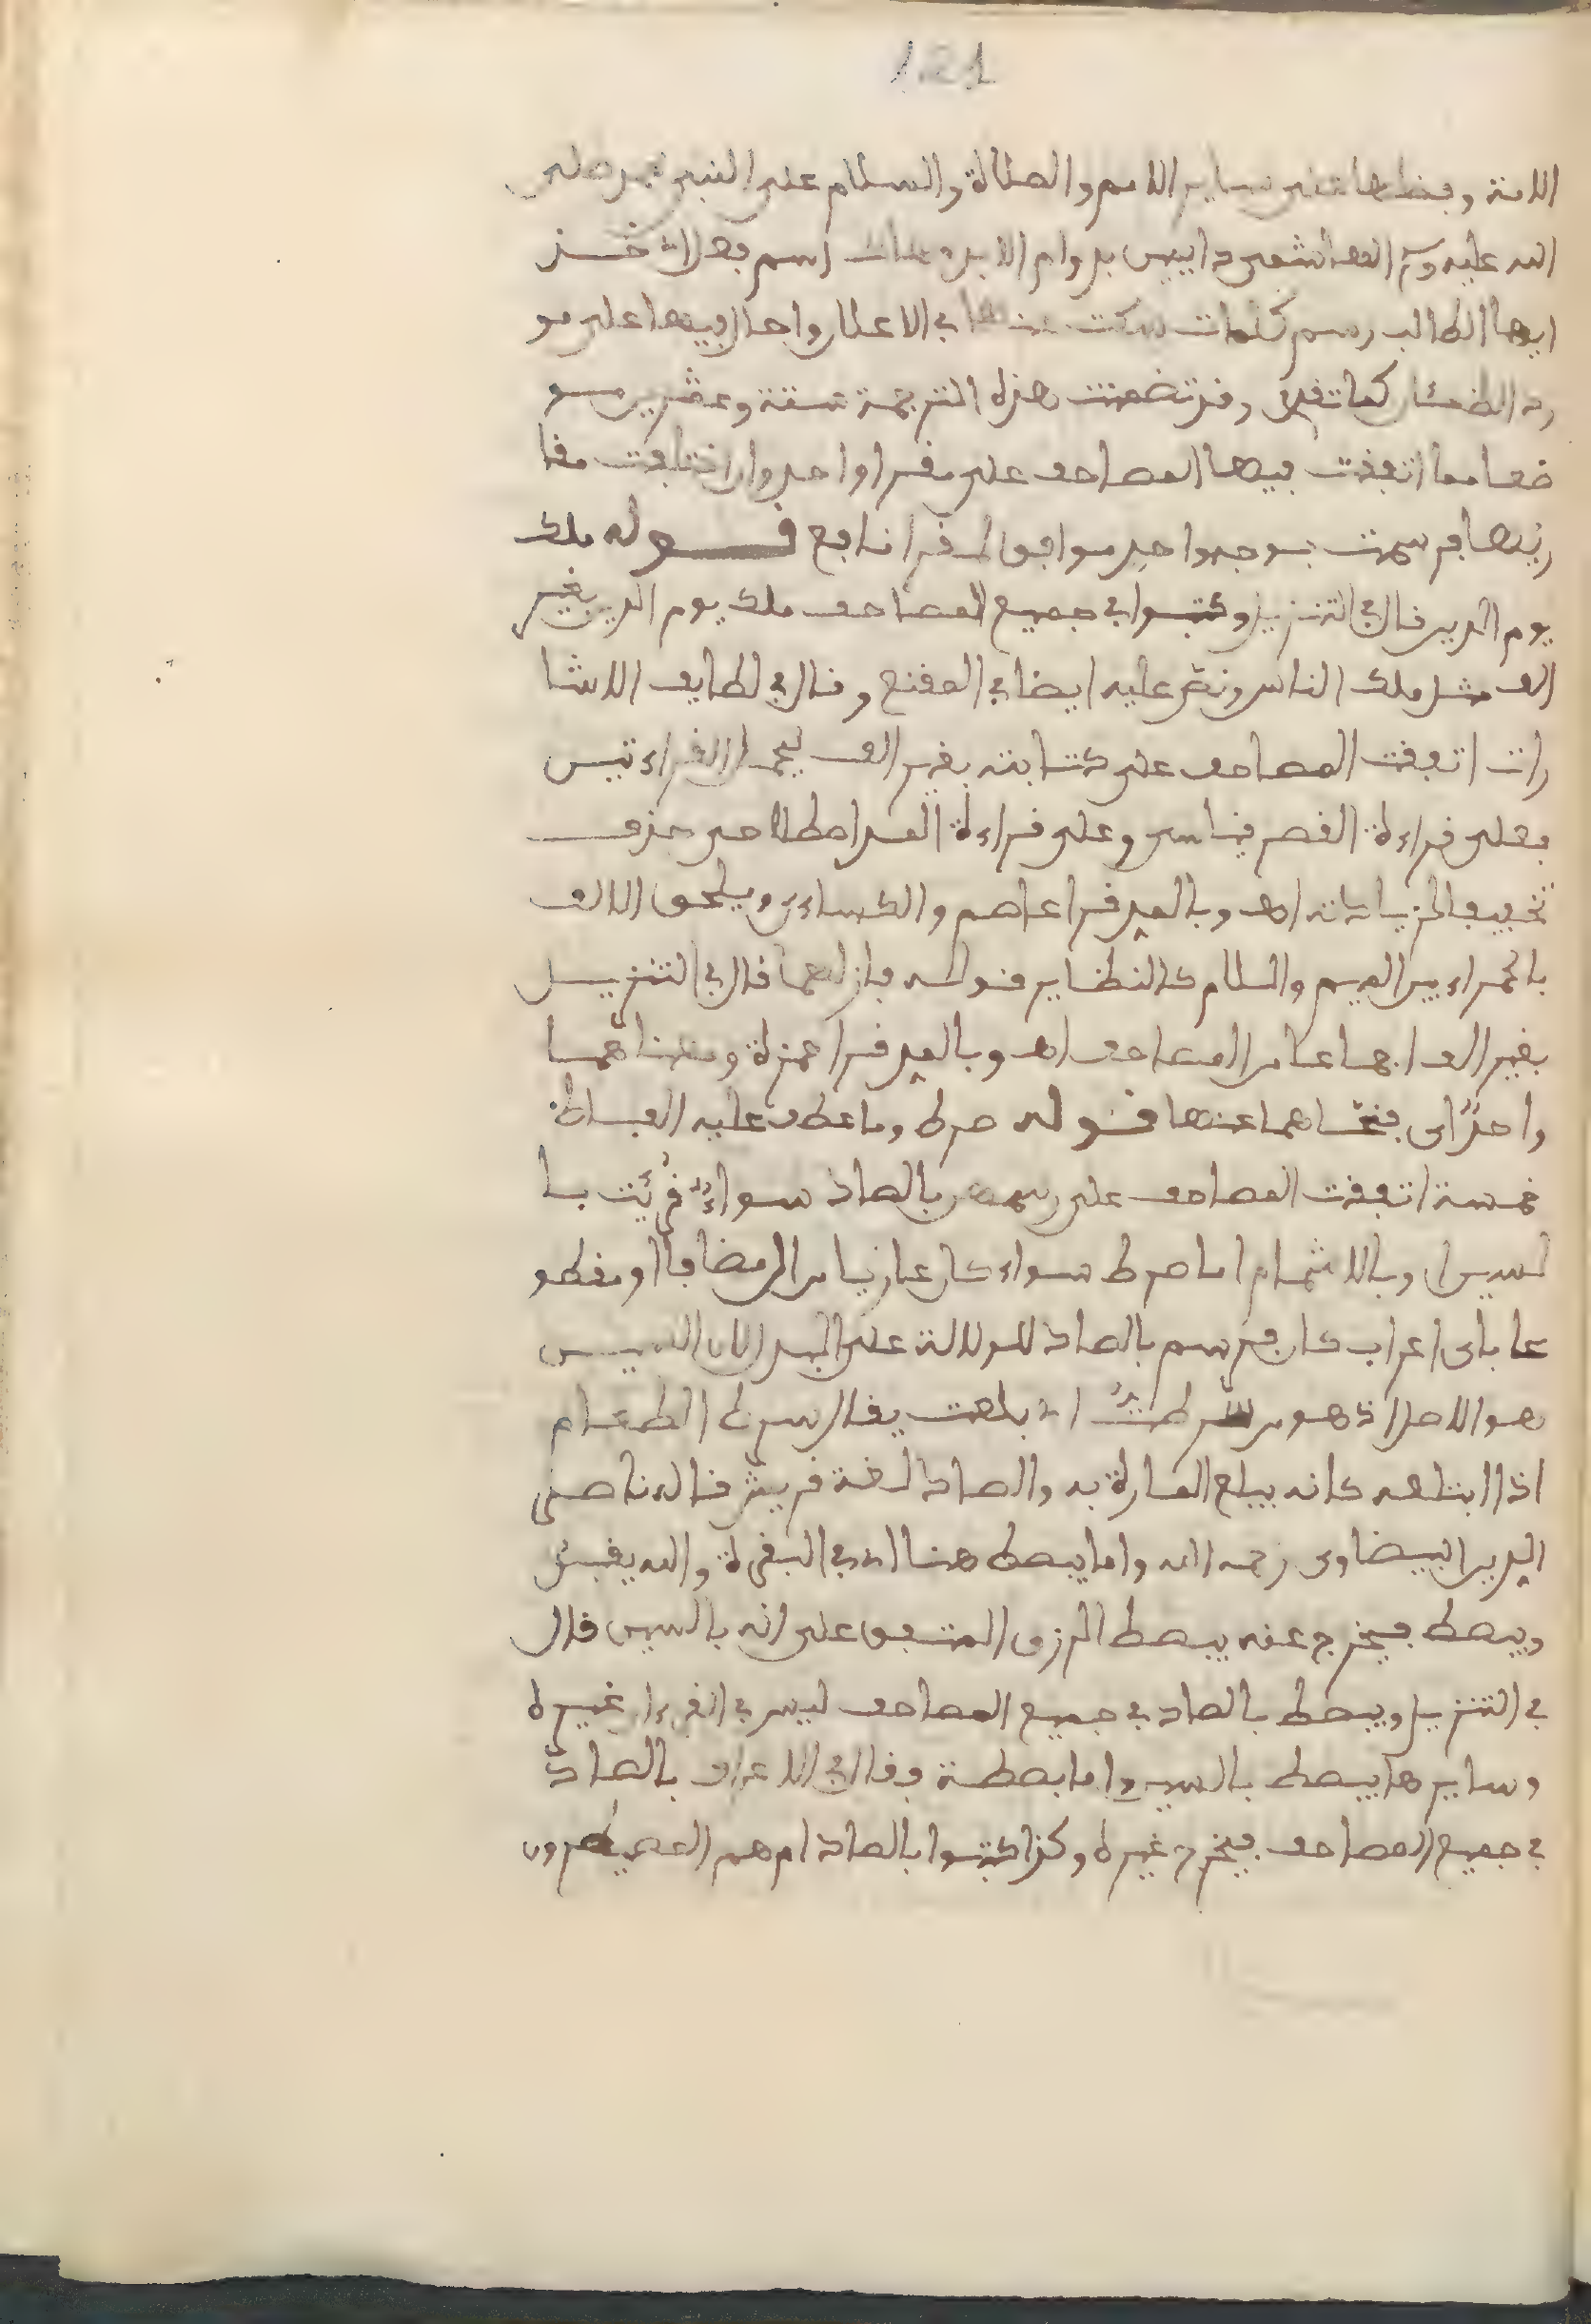 121
الامة وفضلها على ساير الامم والصلاة والسلام على النبي محمد صلى
الله عليه وسلم المصطفى دايمين بدوام الابد وصلت رسم فهاك خـــذ
ايها الطالب رسم كلمات سكت عنها في الاعلان واحال فيها على مو
رد الظمئان كما تقدم وقد تضمنت هذه الترجمة ستة وعشرين مو
ضعا مما اتفقت فيها المصاحف على مقرا واحد وان اختلفت مقا
ريها فرسمت بوجه واحد موافق لمقرا نافع قـــوله ملك
يوم الدين قال في التنزيل وكتبوا في جميع المصاحف ملك يوم الدين بغير
الف مثل ملك الناس ونص عليه ايضا في المقنع وقال في لطايف الاشا
رات اتفقت المصاحف على كتابته بغير الف ليحتمل القراءتين
فعلى قراءة القصر قياسي وعلى قراءة المد اصطلاحي حذف
تخفيفا لزيادته اهـ وبالمد قرا عاصم والكساءي ويلحق الالف
بالحمراء بين الميم واللام كالنظاير قوله فازلهما قال في التنزيل
بغير الف اجماعا من المصاحف اهـ وبالمد قرا حمزة ومعناهما
واحد اي نحاهما عنها قـوله صرط وما عطف عليه الفاظ
خمسة اتفقت المصاحف على رسمهن بالصاد سواء قرئت با
لسين او بالاشمام اما صرط سواء كان عاريا من ال مضافا او مقطو
عا باي اعراب كان فرسم بالصاد للدلالة على البدل لان السين
هو الاصل اذ هو من سرطت اي بلعت يقال سرط الطعام
اذا ابتلعه كانه يبلع المارة به والصاد لغة قريش قاله ناصر
الدين البيضاوي رحمه الله واما يبصط هنا اي في البقرة والله يقبض
ويبصط فيخرج عنه يبسط الرزق المتفق على انه بالسين قال
في التنزيل ويبصط بالصاد في جميع المصاحف ليس في القرءان غيره
وسايرها يبسط بالسين واما بصطة فقال في الاعراف بالصاد
في جميع المصاحف فيخرج غيره وكذا كتبوا بالصاد ام هم المصيطرون